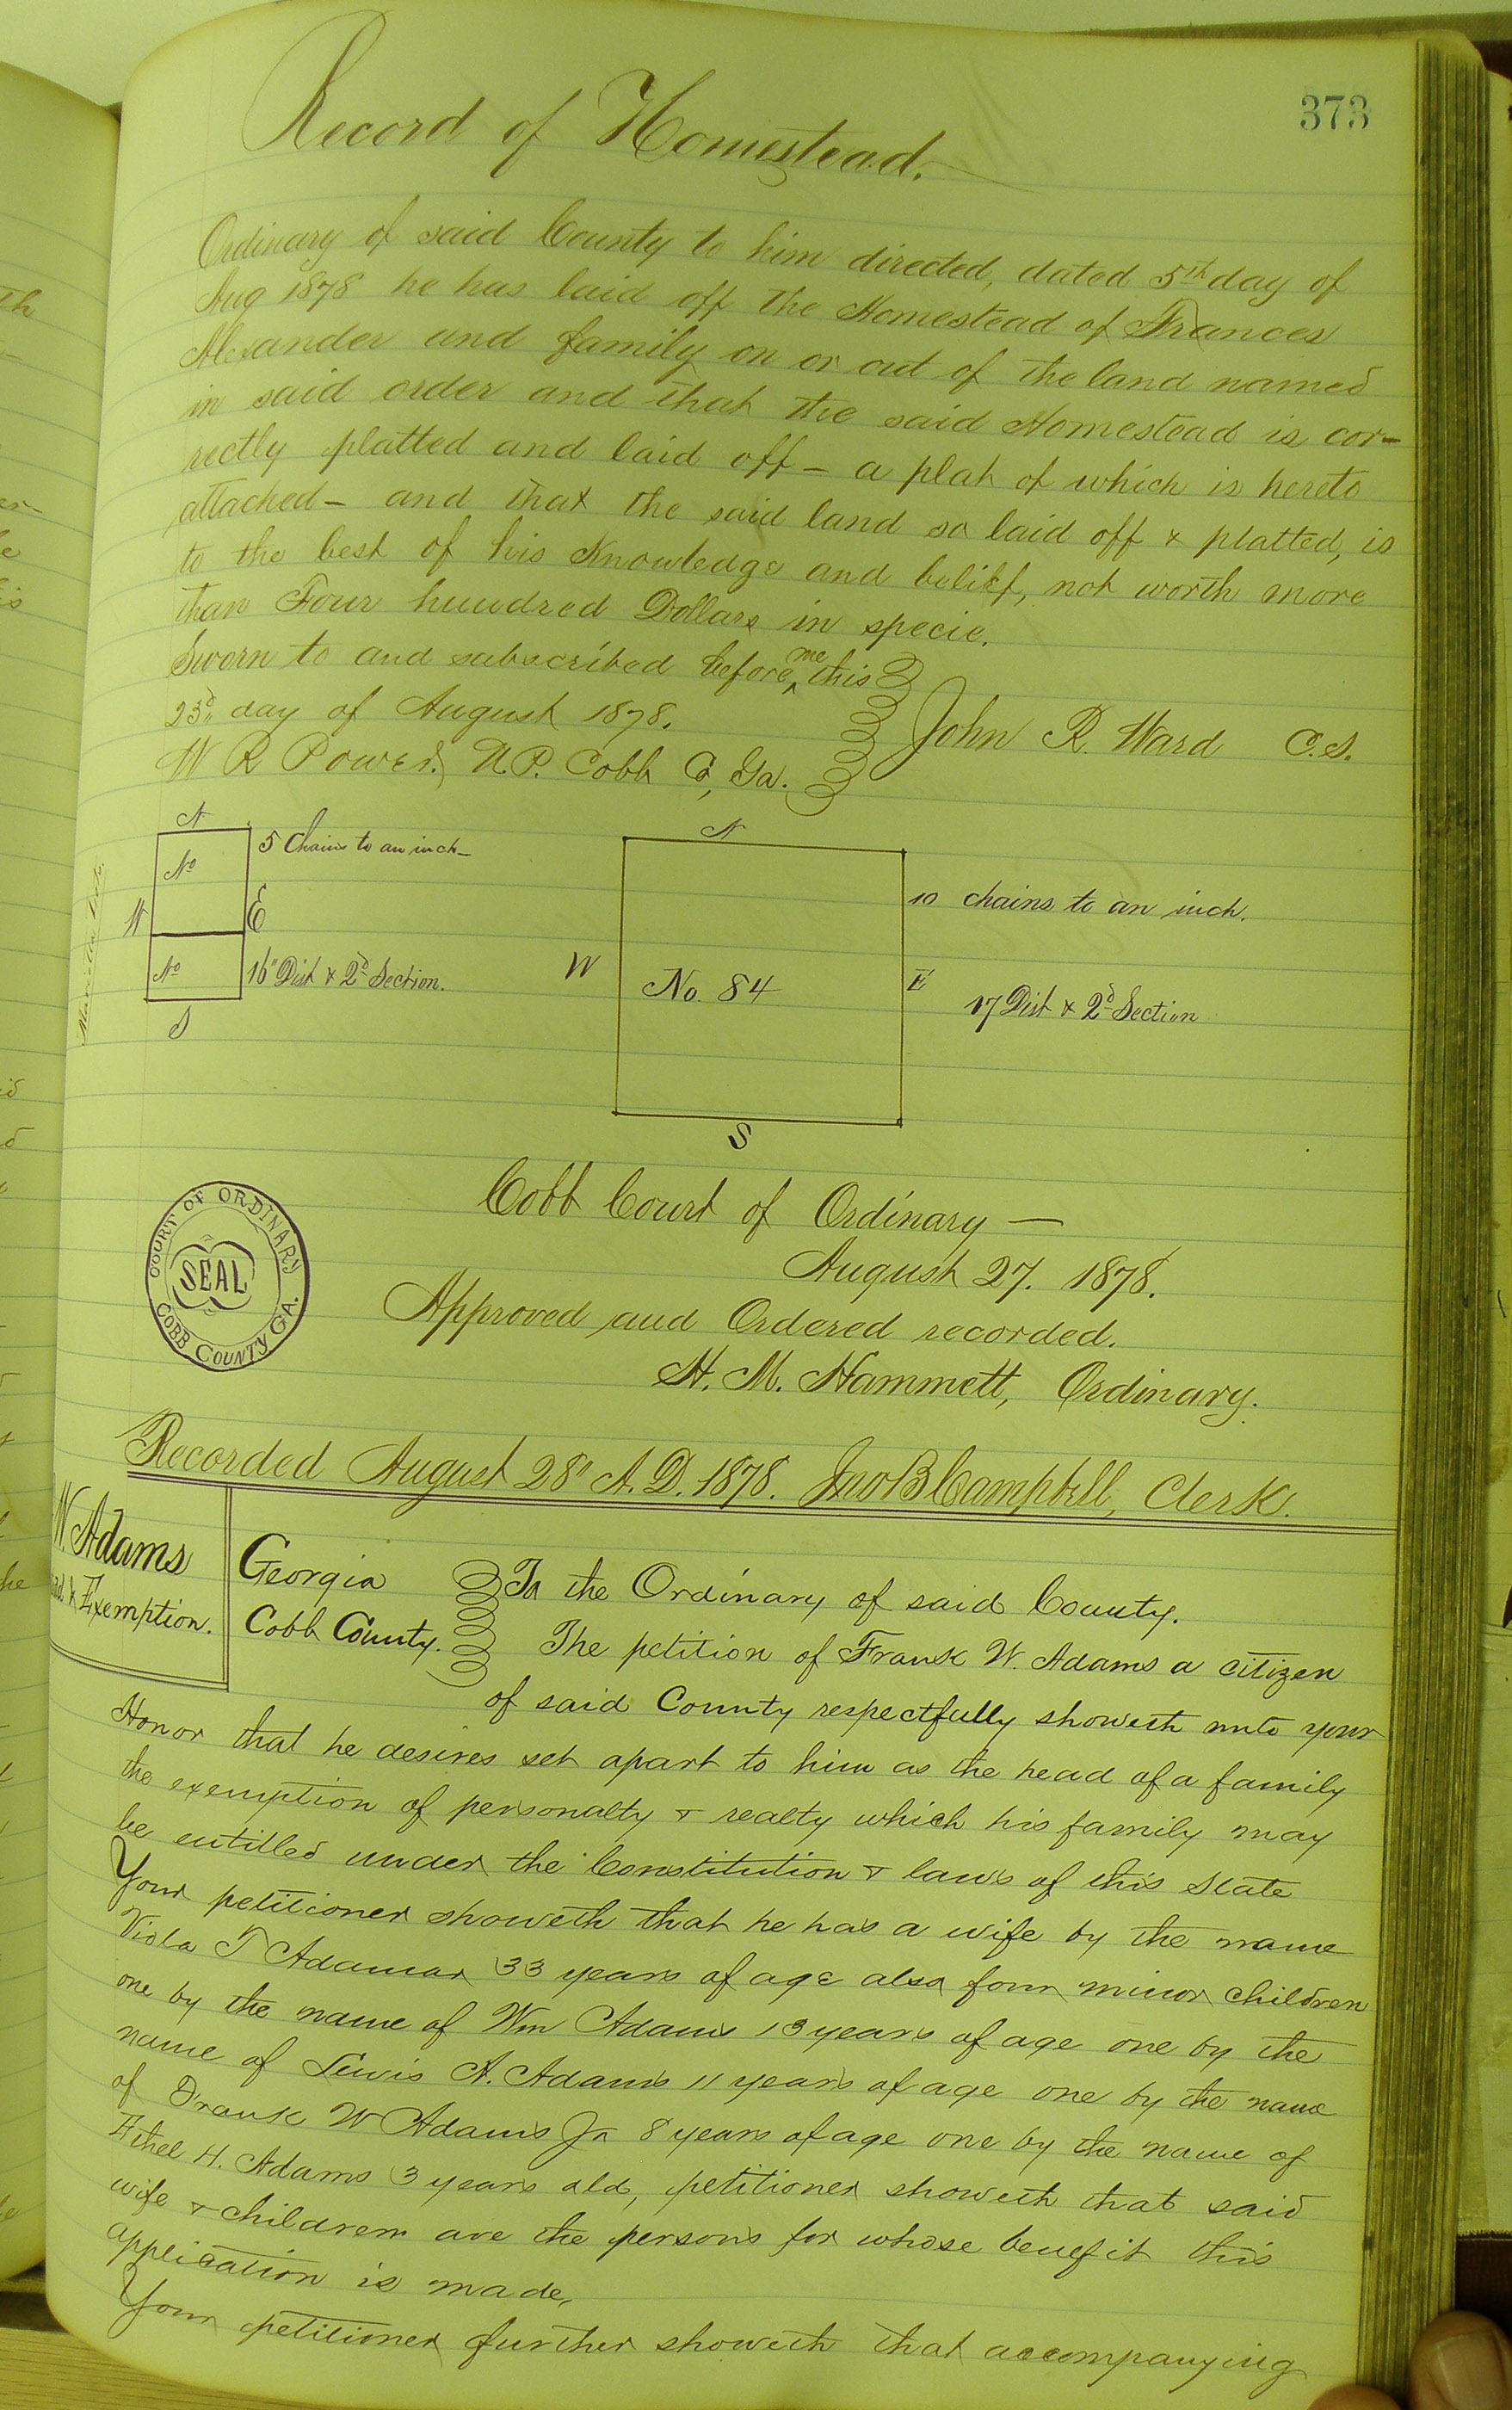 373
Record of Homestead.
Ordinary of said County to him directed, dated 5th day of
Aug 1878 he has laid off the Homestead of Frances
Alexander and family on or out of the land named
in said order and that the said Homestead is cor-
rectly platted and laid off - a plat of which is hereto
attached - and that the said land so laid off & platted, is
to the best of his Knowledge and belief, not worth more
than Four hundred Dollars in specie.
Sworn to and subscribed before me this
23d day of August 1878.
W R Power. N.P. Cobb Co, Ga.
John R. Ward C.S.
N
No
5 Chains to an inch -
W
E
No
16" Dist & 2d Section.
S
N
10 chains to an inch.
W
No. 84
E
17 Dist & 2d Section
S
Cobb Court of Ordinary —
August 27. 1878.
Approved and Ordered recorded.
H. M. Hammett, Ordinary.
COURT OF ORDINARY
SEAL
COBB COUNTY GA.
Recorded August 28" A. D. 1878. Jno B Campbell, Clerk.
W. Adams
& Exemption.
Georgia
Cobb County.
To the Ordinary of said County.
The petition of Frank W. Adams a citizen
of said County respectfully showeth unto your
Honor that he desires set apart to him as the head of a family
the exemption of personalty & realty which his family may
be entitled under the Constitution & laws of this State
Your petitioner showeth that he has a wife by the name
Viola T Adamas 33 years of age also four minor children
one by the name of Wm Adams 13 years of age one by the
name of Lewis A. Adams 11 years of age one by the name
of Frank W Adams Jr 8 years of age one by the name of
Ethel H. Adams 3 years old, petitioner showeth that said
wife & children are the persons for whose benefit this
application is made,
Your petitioner further showeth that accompanying